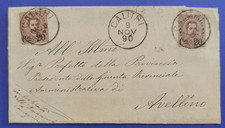 CALITRI
9
NOV
90
All' Illmo
Sigr Prefetto della Provincia
Presidente della Giunta Provinciale
Amministrativa di
Avellino